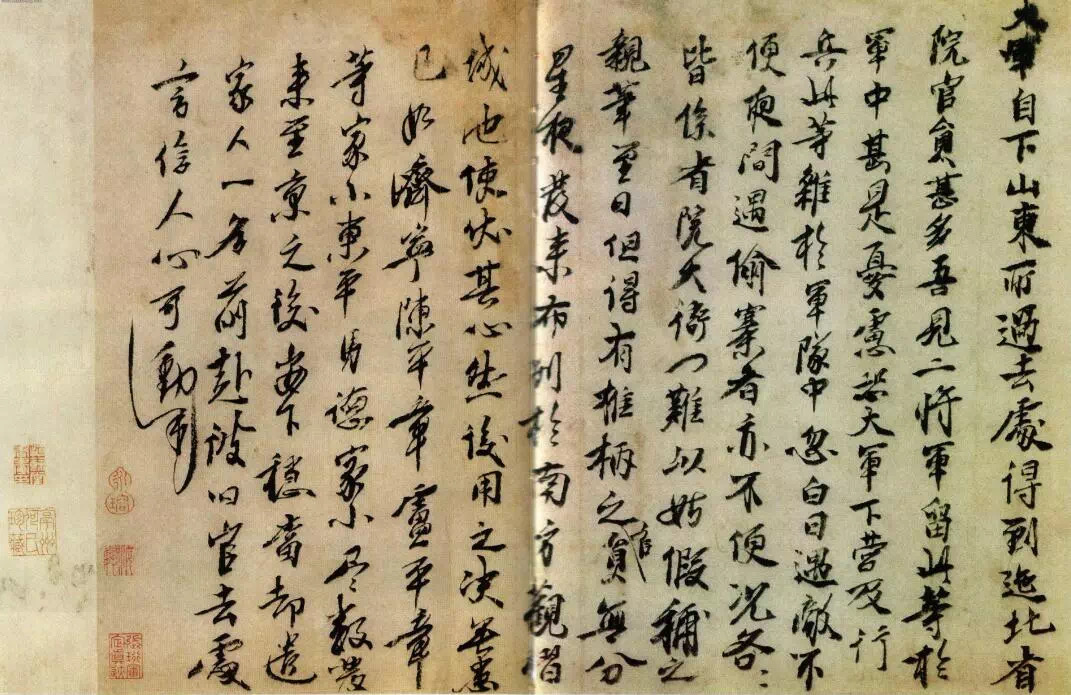 大軍自下山東所過去處得到迤北省
院官員甚多吾見二將軍留此等於
軍中甚是憂慮恐大軍下營及行
兵此等雜於軍隊中忽白日遇敵不
便夜間遇偷寨者亦不便況各〻
皆係省院大衙门難以姑假補之
親筆至日但得有權柄之官員無分
星夜發來布列於南方觀看
城池使伏其心然後用之決無患
已如濟寧陳平章盧平章
等家小東平馬德家小尽數發
來至京之後安下穩當却遣
家人一名前赴彼旧官去處
言信人心可動